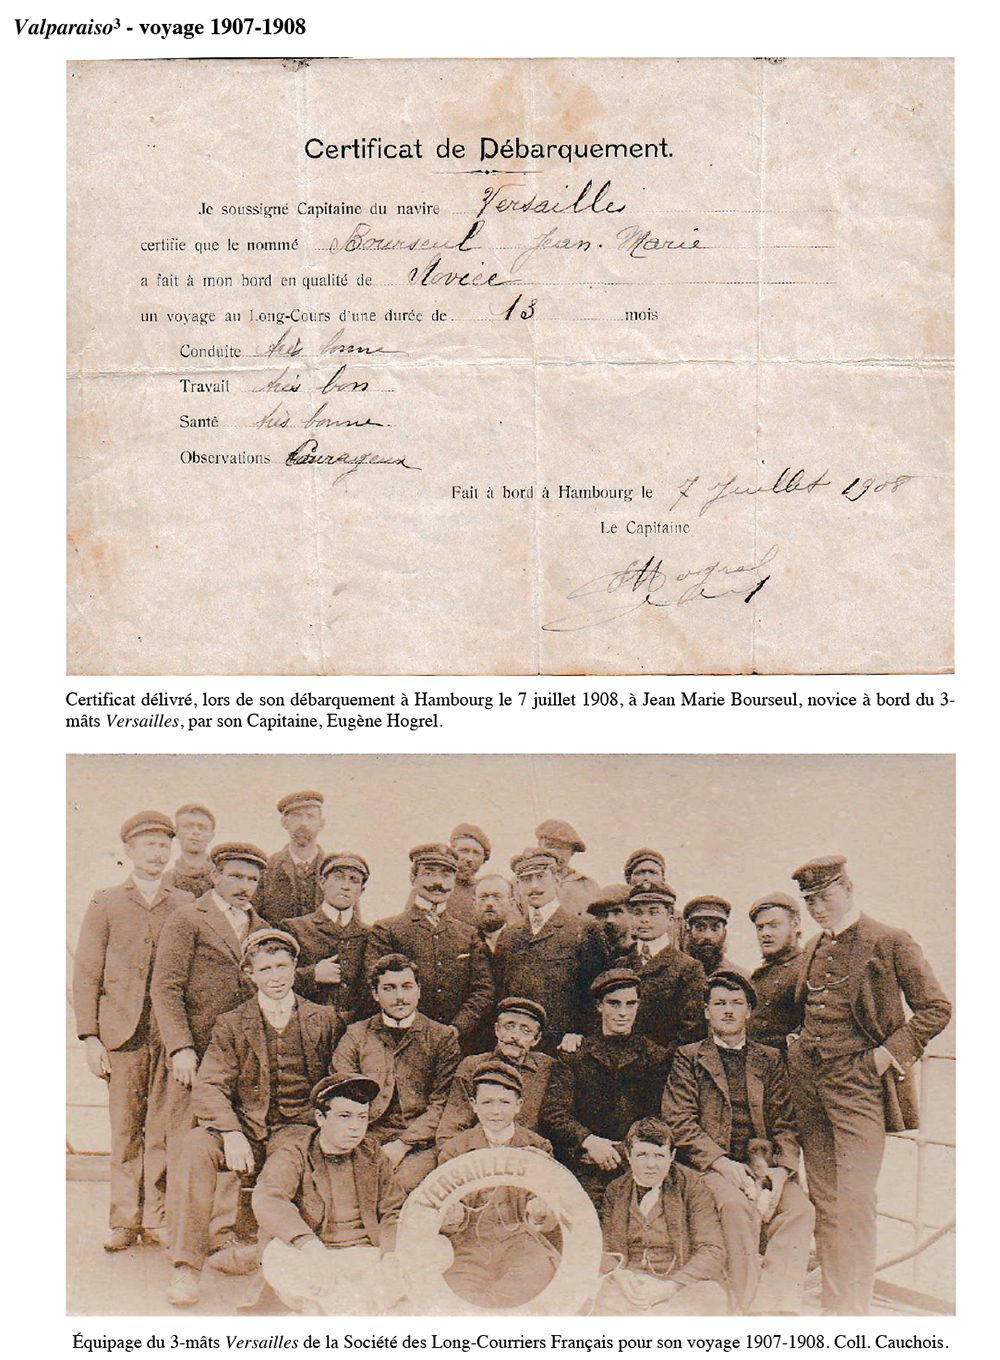 Valparaiso³ - voyage 1907-1908
Certificat de Débarquement.
Je soussigné Capitaine du navire Versailles
certifie que le nommé Bourseul Jean-Marie
a fait à mon bord en qualité de Novice
un voyage au Long-Cours d'une durée de 13 mois
Conduite très bonne
Travail très bon
Santé très bonne.
Observations Courageux
Fait à bord à Hambourg le 7 Juillet 1908
Le Capitaine
EHogrel
Certificat délivré, lors de son débarquement à Hambourg le 7 juillet 1908, à Jean Marie Bourseul, novice à bord du 3-
mâts Versailles, par son Capitaine, Eugène Hogrel.
VERSAILLES
Équipage du 3-mâts Versailles de la Société des Long-Courriers Français pour son voyage 1907-1908. Coll. Cauchois.